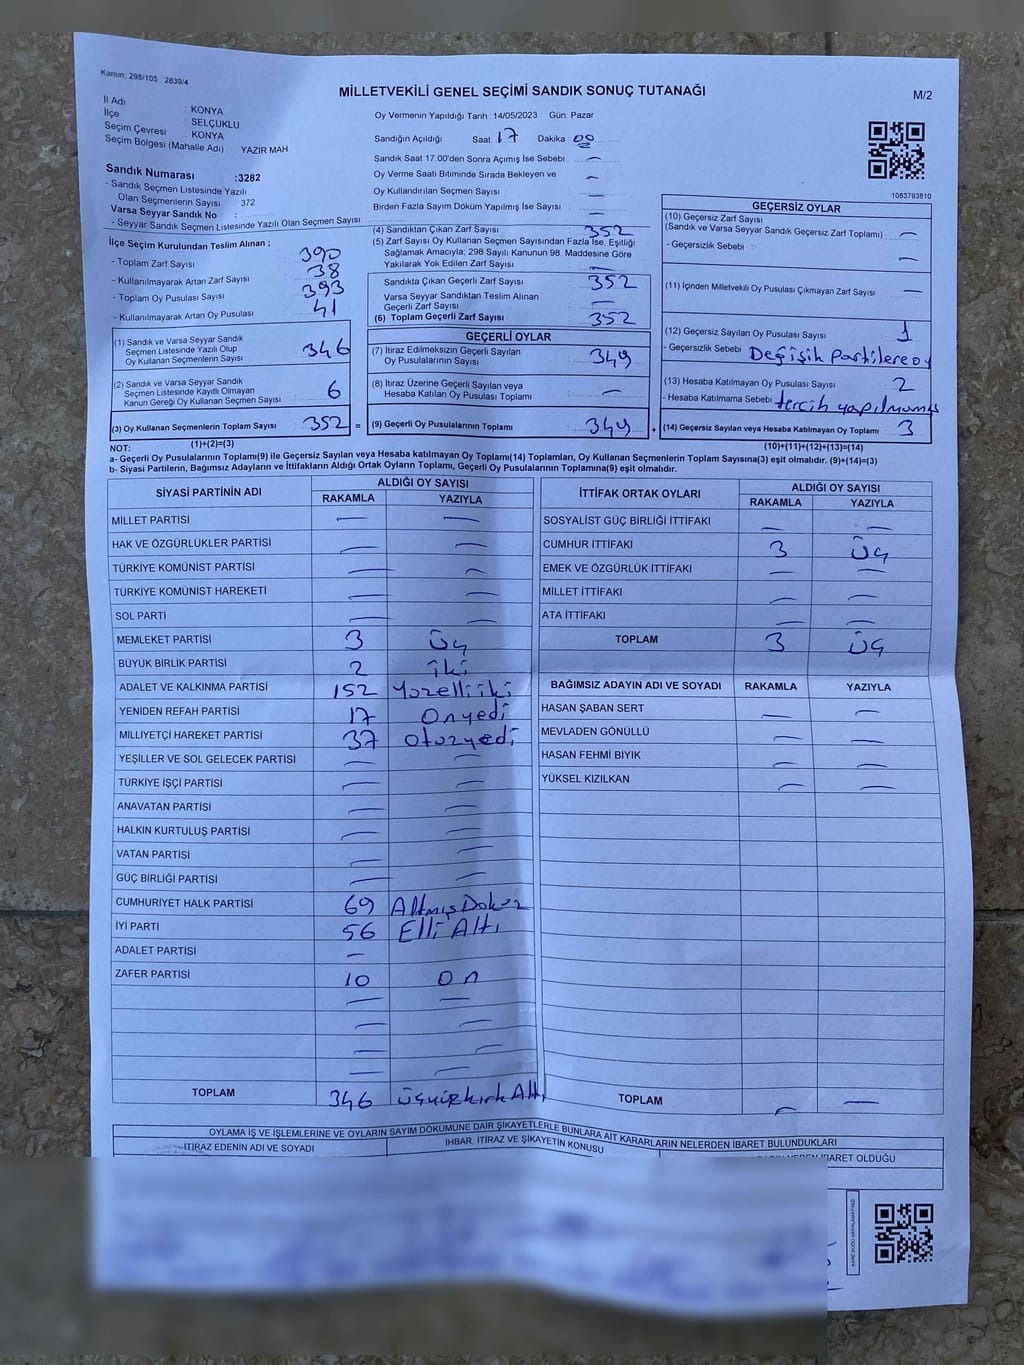 Kanun: 298/105 . 2839/4
MİLLETVEKİLİ GENEL SEÇİMİ SANDIK SONUÇ TUTANAĞI
M/2
İl Adı : KONYA
İlçe : SELÇUKLU
Seçim Çevresi : KONYA
Seçim Bölgesi (Mahalle Adı) YAZIR MAH
Sandık Numarası :3282
- Sandık Seçmen Listesinde Yazılı
Olan Seçmenlerin Sayısı : 372
Varsa Seyyar Sandık No :
- Seyyar Sandık Seçmen Listesinde Yazılı Olan Seçmen Sayısı :
Oy Vermenin Yapıldığı Tarih :14/05/2023 Gün: Pazar
Sandığın Açıldığı Saat: 17 Dakika : 00
Sandık Saat 17:00'den Sonra Açımış İse Sebebi : —
Oy Verme Saati Bitiminde Sırada Bekleyen ve
Oy Kullandırılan Seçmen Sayısı : —
Birden Fazla Sayım Döküm Yapılmış İse Sayısı : —
1083793810
İlçe Seçim Kurulundan Teslim Alınan ;
- Toplam Zarf Sayısı : 390
- Kullanılmayarak Artan Zarf Sayısı : 38
- Toplam Oy Pusulası Sayısı : 393
- Kullanılmayarak Artan Oy Pusulası : 41
(1) Sandık ve Varsa Seyyar Sandık
Seçmen Listesinde Yazılı Olup
Oy Kullanan Seçmenlerin Sayısı : 346
(2) Sandık ve Varsa Seyyar Sandık
Seçmen Listesinde Kayıtlı Olmayan
Kanun Gereği Oy Kullanan Seçmen Sayısı : 6
(3) Oy Kullanan Seçmenlerin Toplam Sayısı : 352 =
(1)+(2)=(3)
(4) Sandıktan Çıkan Zarf Sayısı : 352
(5) Zarf Sayısı Oy Kullanan Seçmen Sayısından Fazla İse, Eşitliği
Sağlamak Amacıyla, 298 Sayılı Kanunun 98. Maddesine Göre
Yakılarak Yok Edilen Zarf Sayısı : —
Sandıkta Çıkan Geçerli Zarf Sayısı : 352
Varsa Seyyar Sandıktan Teslim Alınan
Geçerli Zarf Sayısı : —
(6) Toplam Geçerli Zarf Sayısı : 352
GEÇERLİ OYLAR
(7) İtiraz Edilmeksizin Geçerli Sayılan
Oy Pusulalarının Sayısı : 349
(8) İtiraz Üzerine Geçerli Sayılan veya
Hesaba Katılan Oy Pusulası Toplamı : —
(9) Geçerli Oy Pusulalarının Toplamı : 349 +
GEÇERSİZ OYLAR
(10) Geçersiz Zarf Sayısı
(Sandık ve Varsa Seyyar Sandık Geçersiz Zarf Toplamı) : —
- Geçersizlik Sebebi : —
(11) İçinden Milletvekili Oy Pusulası Çıkmayan Zarf Sayısı : —
(12) Geçersiz Sayılan Oy Pusulası Sayısı : 1
- Geçersizlik Sebebi : Değişik Partilere oy
(13) Hesaba Katılmayan Oy Pusulası Sayısı : 2
- Hesaba Katılmama Sebebi : tercih yapılmamış
(14) Geçersiz Sayılan veya Hesaba Katılmayan Oy Toplamı : 3
(10)+(11)+(12)+(13)=(14)
NOT:
a- Geçerli Oy Pusulalarının Toplamı(9) ile Geçersiz Sayılan veya Hesaba Katılmayan Oy Toplamı(14) Toplamları, Oy Kullanan Seçmenlerin Toplam Sayısına(3) eşit olmalıdır. (9)+(14)=(3)
b- Siyasi Partilerin, Bağımsız Adayların ve İttifakların Aldığı Ortak Oyların Toplamı, Geçerli Oy Pusulalarının Toplamına(9) eşit olmalıdır.
SİYASİ PARTİNİN ADI ALDIĞI OY SAYISI
RAKAMLA YAZIYLA
MİLLET PARTİSİ — —
HAK VE ÖZGÜRLÜKLER PARTİSİ — —
TÜRKİYE KOMÜNİST PARTİSİ — —
TÜRKİYE KOMÜNİST HAREKETİ — —
SOL PARTİ — —
MEMLEKET PARTİSİ 3 Üç
BÜYÜK BİRLİK PARTİSİ 2 iki
ADALET VE KALKINMA PARTİSİ 152 Yüzelliiki
YENİDEN REFAH PARTİSİ 17 Onyedi
MİLLİYETÇİ HAREKET PARTİSİ 37 otuzyedi
YEŞİLLER VE SOL GELECEK PARTİSİ — —
TÜRKİYE İŞÇİ PARTİSİ — —
ANAVATAN PARTİSİ — —
HALKIN KURTULUŞ PARTİSİ — —
VATAN PARTİSİ — —
GÜÇ BİRLİĞİ PARTİSİ — —
CUMHURİYET HALK PARTİSİ 69 AltmışDokuz
İYİ PARTİ 56 Elli Altı
ADALET PARTİSİ —
ZAFER PARTİSİ 10 On
— —
— —
— —
— —
TOPLAM 346 üçyüzkırk Altı
İTTİFAK ORTAK OYLARI ALDIĞI OY SAYISI
RAKAMLA YAZIYLA
SOSYALİST GÜÇ BİRLİĞİ İTTİFAKI — —
CUMHUR İTTİFAKI 3 Üç
EMEK VE ÖZGÜRLÜK İTTİFAKI — —
MİLLET İTTİFAKI — —
ATA İTTİFAKI — —
TOPLAM 3 Üç
BAĞIMSIZ ADAYIN ADI VE SOYADI RAKAMLA YAZIYLA
HASAN ŞABAN SERT — —
MEVLADEN GÖNÜLLÜ — —
HASAN FEHMİ BIYIK — —
YÜKSEL KIZILKAN — —
TOPLAM — —
OYLAMA İŞ VE İŞLEMLERİNE VE OYLARIN SAYIM DÖKÜMÜNE DAİR ŞİKAYETLERLE BUNLARA AİT KARARLARIN NELERDEN İBARET BULUNDUKLARI
İTİRAZ EDENİN ADI VE SOYADI
İHBAR, İTİRAZ VE ŞİKAYETİN KONUSU
İBARET OLDUĞU